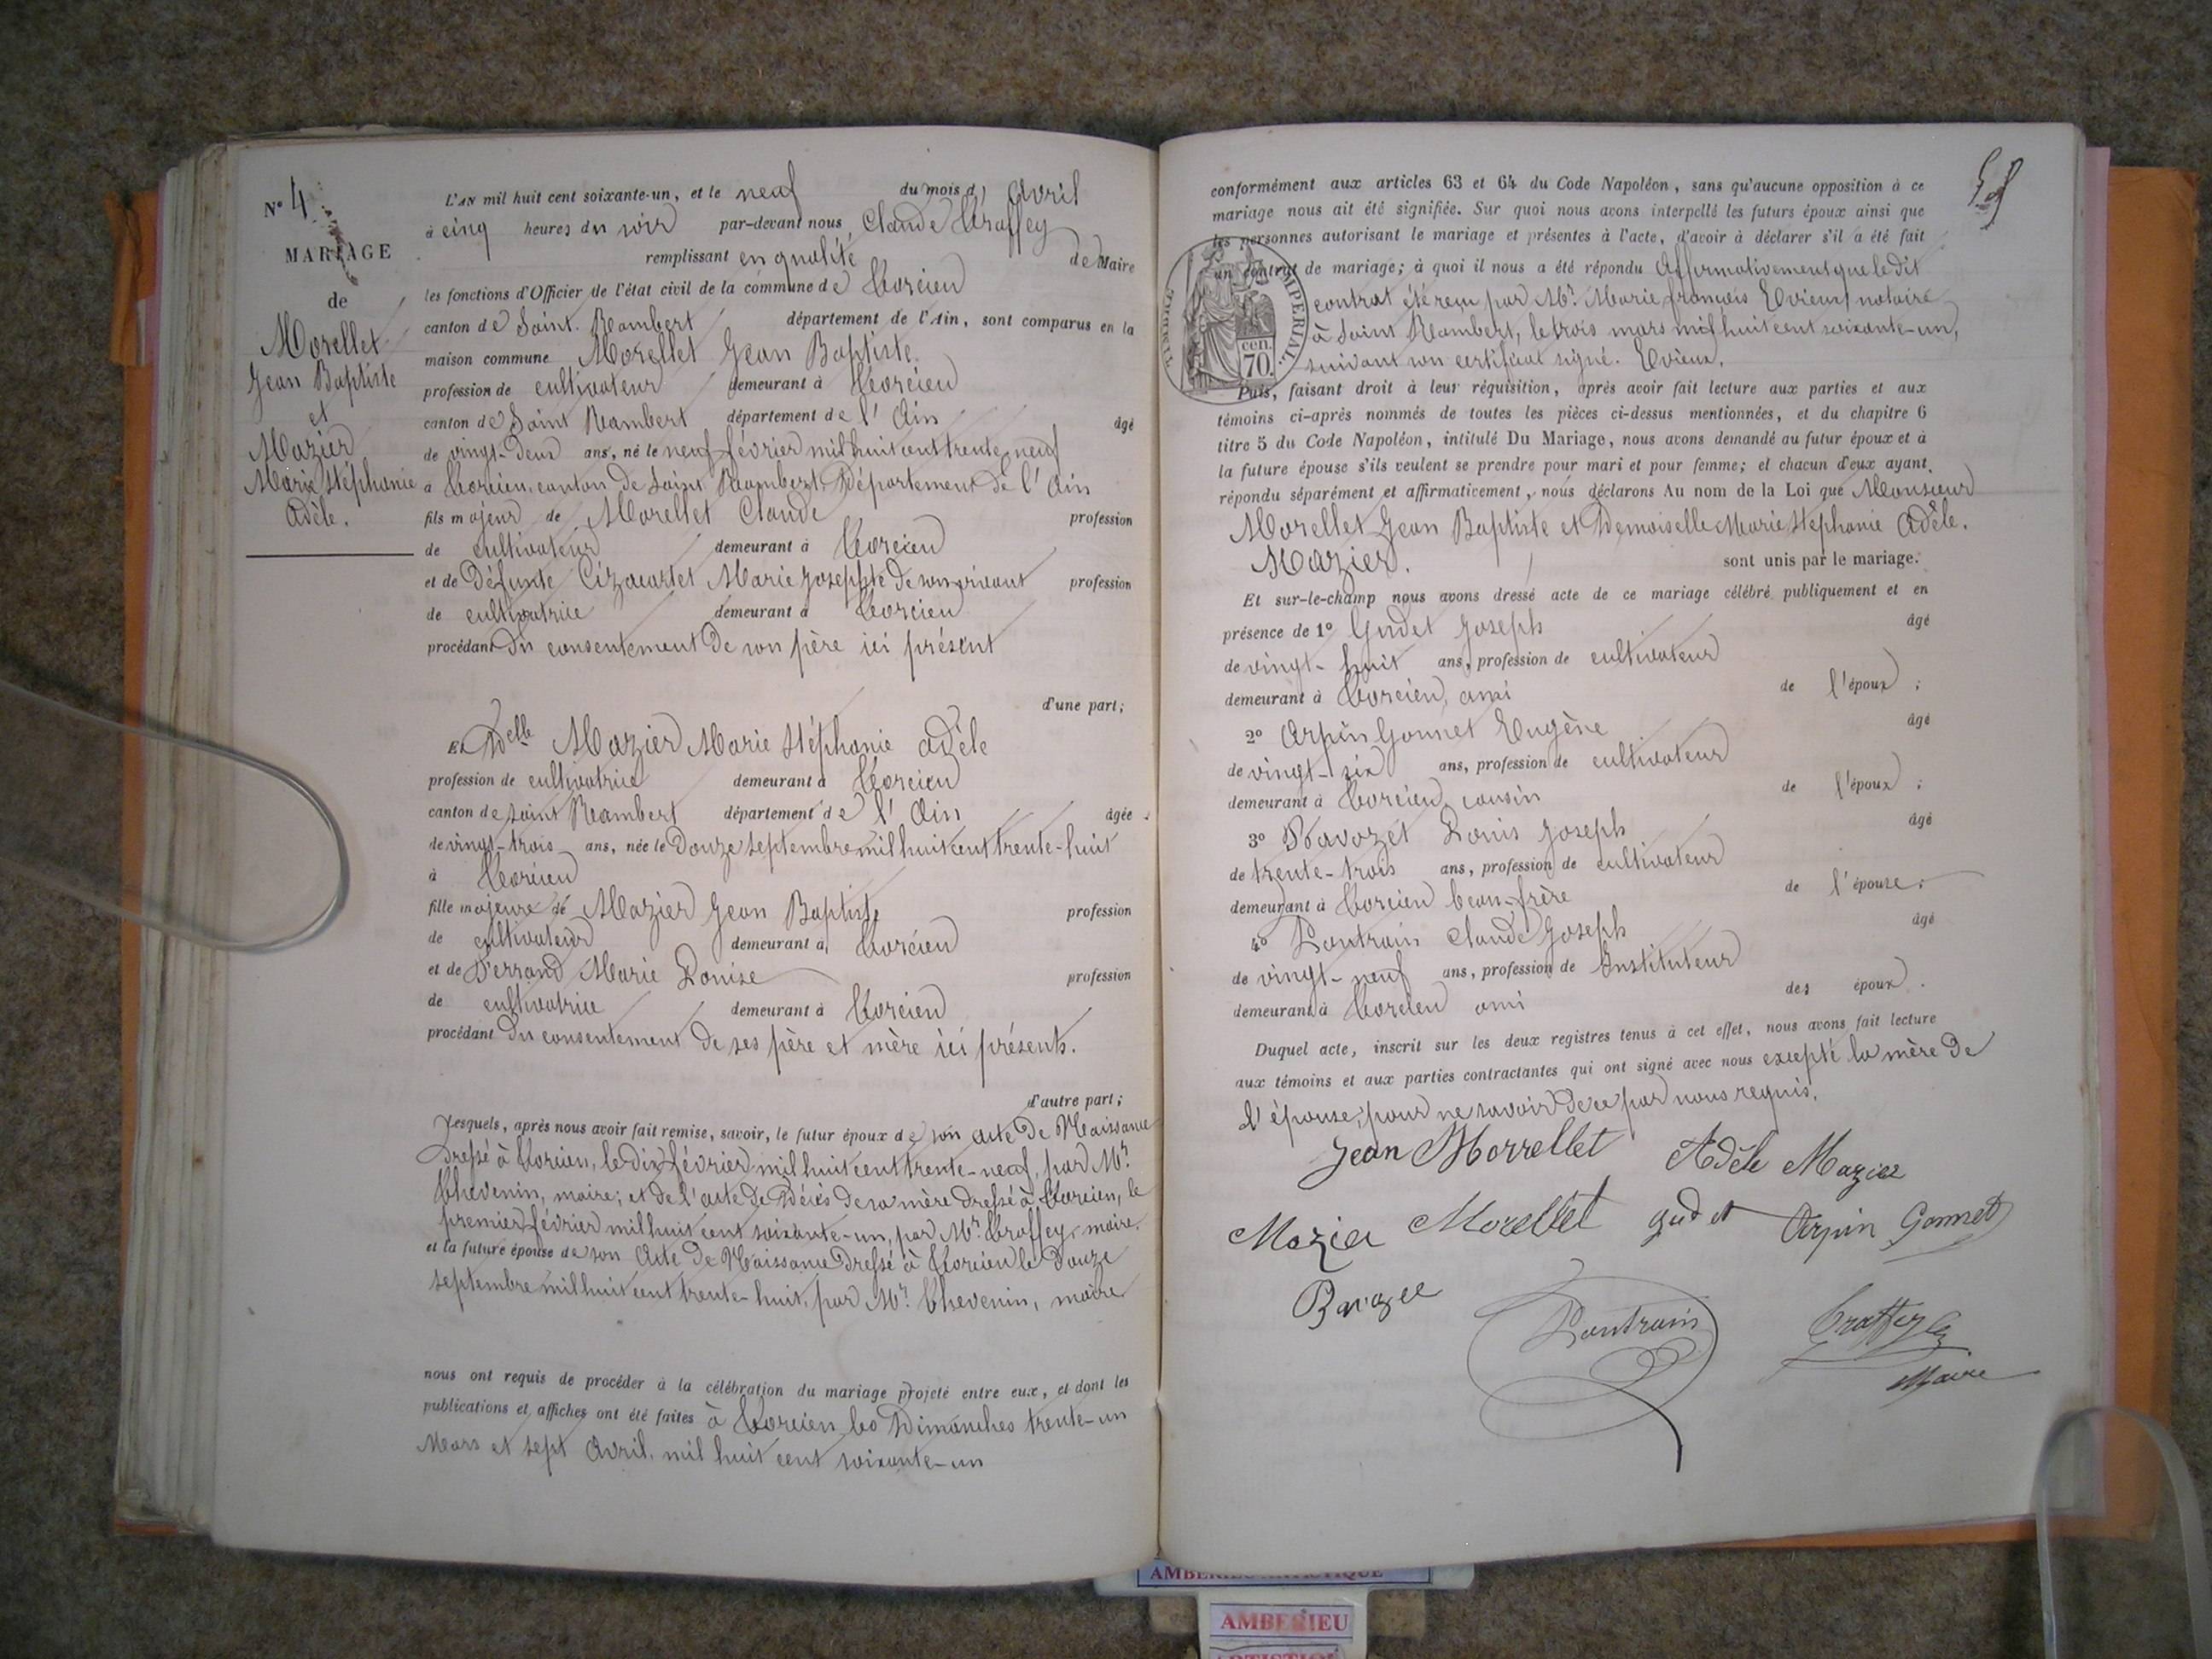 N° 4
MARIAGE
de
Morellet
Jean Baptiste
et
Mazier
Marie Stéphanie
Adèle.
L'AN mil huit cent soixante-un, et le neuf du mois d' Avril
à cinq heures du soir par-devant nous, Claude Craffey
remplissant en qualité de Maire
les fonctions d'Officier de l'état civil de la commune de Torcieu
canton de Saint Rambert département de l'Ain, sont comparus en la
maison commune Morellet Jean Baptiste
profession de cultivateur demeurant à Torcieu
canton de Saint Rambert département de l'Ain âgé
de vingt-deux ans, né le neuf février mil huit cent trente neuf
à Torcieu, canton de Saint Rambert, Département de l'Ain
fils majeur de Morellet Claude profession
de cultivateur demeurant à Torcieu
et de Défunte Marie Josephte de son vivant profession
de cultivatrice demeurant à Torcieu
procédant du consentement de son père ici présent
d'une part;
Et Delle Mazier Marie Stéphanie Adèle
profession de cultivatrice demeurant à Torcieu
canton de Saint Rambert département de l'Ain âgée
de vingt-trois ans, née le Douze septembre mil huit cent trente-huit
à Torcieu
fille majeure de Mazier Jean Baptiste profession
de cultivateur demeurant à Torcieu
et de Ferrand Marie Louise profession
de cultivatrice demeurant à Torcieu
procédant du consentement de ses père et mère ici présents.
d'autre part;
Lesquels, après nous avoir fait remise, savoir, le futur époux de son acte de Naissance
dressé à Torcieu, le dix février mil huit cent trente-neuf, par Mr.
Thevenin, maire; et de l'acte de Décès de sa mère dressé à Torcieu, le
premier février mil huit cent soixante-un, par Mr. Craffey, maire.
et la future épouse de son Acte de Naissance dressé à Torcieu le douze
septembre mil huit cent trente-huit, par Mr. Thevenin, maire
nous ont requis de procéder à la célébration du mariage projeté entre eux, et dont les
publications et affiches ont été faites à Torcieu les Dimanches trente-un
Mars et sept Avril, mil huit cent soixante-un
conformément aux articles 63 et 64 du Code Napoléon, sans qu'aucune opposition à ce
mariage nous ait été signifiée. Sur quoi nous avons interpellé les futurs époux ainsi que
les personnes autorisant le mariage et présentes à l'acte, d'avoir à déclarer s'il a été fait
un contrat de mariage; à quoi il nous a été répondu Affirmativement que le dit
contrat été reçu par Mr. Marie françois Evieux notaire
à Saint Rambert, le trois mars mil huit cent soixante-un,
suivant son certificat signé. Evieux.
TIMBRE IMPERIAL.
cen.
70.
Puis, faisant droit à leur réquisition, après avoir fait lecture aux parties et aux
témoins ci-après nommés de toutes les pièces ci-dessus mentionnées, et du chapitre 6
titre 5 du Code Napoléon, intitulé Du Mariage, nous avons demandé au futur époux et à
la future épouse s'ils veulent se prendre pour mari et pour femme; et chacun d'eux ayant
répondu séparément et affirmativement, nous déclarons Au nom de la Loi que Monsieur
Morellet Jean Baptiste et Demoiselle Marie Stephanie Adèle.
Mazier. sont unis par le mariage.
Et sur-le-champ nous avons dressé acte de ce mariage célébré publiquement et en
présence de 1° Gudet Joseph âgé
de vingt-huit ans, profession de cultivateur
demeurant à Torcieu, ami de l'époux;
2° Arpin Gonnet Eugène âgé
de vingt-six ans, profession de cultivateur
demeurant à Torcieu, cousin de l'époux;
3° Ravozet Louis Joseph âgé
de trente-trois ans, profession de cultivateur
demeurant à Torcieu beau-frère de l'épouse;
4° Lentrain Claude Joseph âgé
de vingt-neuf ans, profession de Instituteur
demeurant à Torcieu ami des époux.
Duquel acte, inscrit sur les deux registres tenus à cet effet, nous avons fait lecture
aux témoins et aux parties contractantes qui ont signé avec nous excepté la mère de
l'épouse, pour ne savoir de ce par nous requis.
Jean Morrellet Adèle Mazier
Mazier Morellet gudet Arpin Gonnet
Lentrain
Maire
AMBERIEU ARTISTIQUE
AMBERIEU
ARTISTIQUE